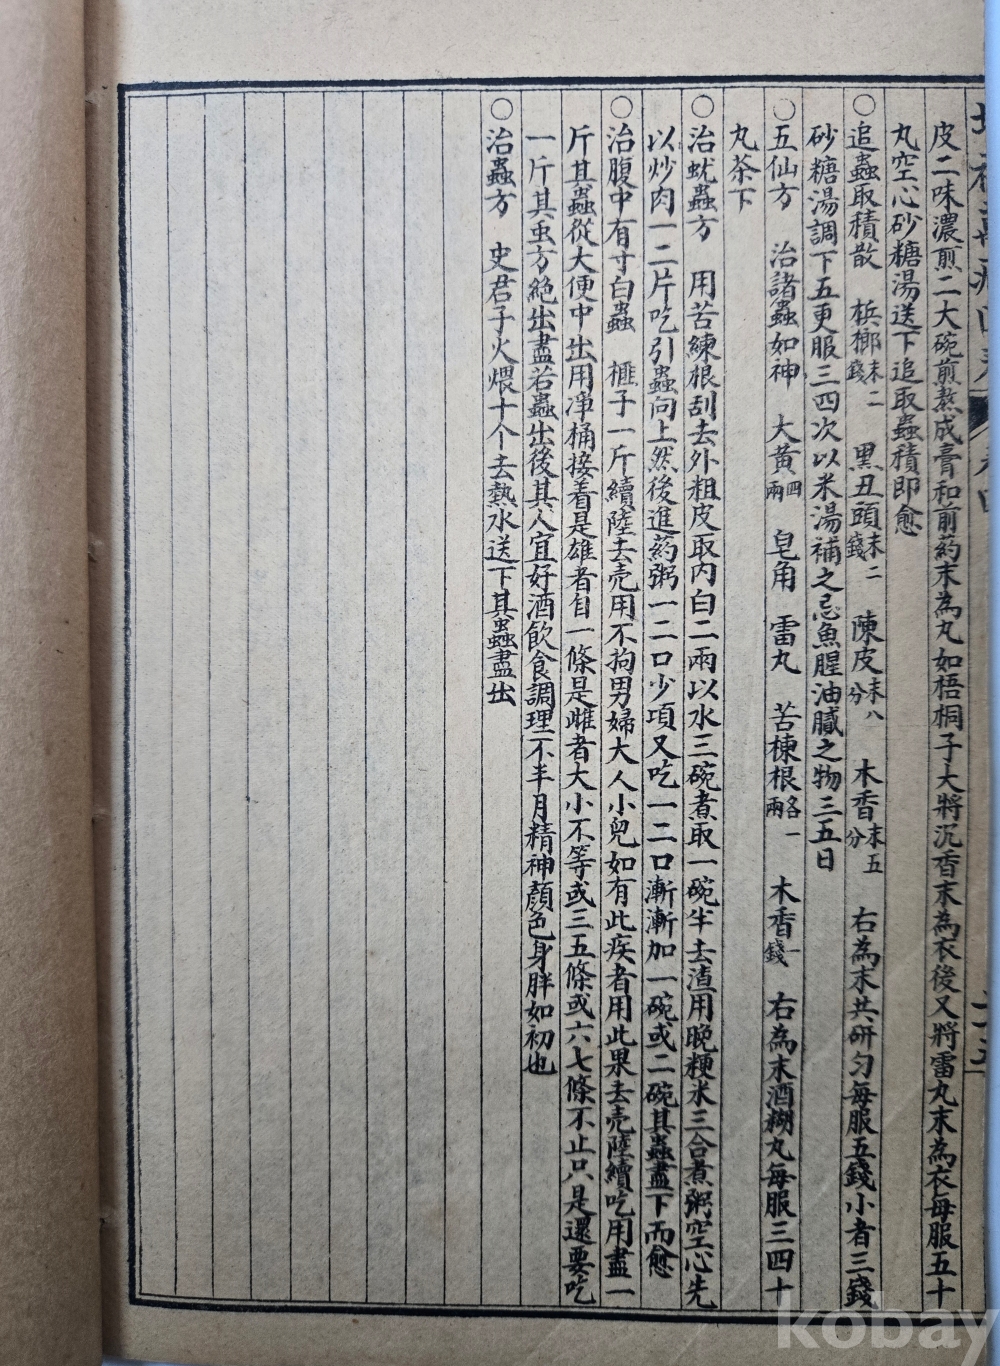 皮二味濃煎二大碗煎熬成膏和前药末為丸如梧桐子大將沉香末為衣後又將雷丸末為衣每服五十
丸空心砂糖湯送下追取蟲積即愈
○追蟲取積散 梹榔末二錢 黑丑頭末二錢 陳皮末八分 木香末五分 右為末共研匀每服五錢小者三錢
砂糖湯調下五更服三四次以米湯補之忌魚腥油膩之物三五日
○五仙方 治諸蟲如神 大黃四兩 皂角 雷丸 苦楝根各一兩 木香一錢 右為末酒糊丸每服三四十
丸茶下
○治蚘蟲方 用苦練根刮去外粗皮取內白二兩以水三碗煮取一碗半去渣用晚粳米三合煮粥空心先
以炒肉一二片吃引蟲向上然後進药粥一二口少項又吃一二口漸漸加一碗或二碗其蟲盡下而愈
○治腹中有寸白蟲 榧子一斤續陸去壳用不拘男婦大人小兒如有此疾者用此果去壳陸續吃用盡一
斤其蟲從大便中出用凈桶接着是雄者自一條是雌者大小不等或三五條或六七條不止只是還要吃
一斤其虫方絕出盡若蟲出後其人宜好酒飲食調理不半月精神顏色身胖如初也
○治蟲方 史君子火煨十个去熱水送下其蟲盡出
kobay